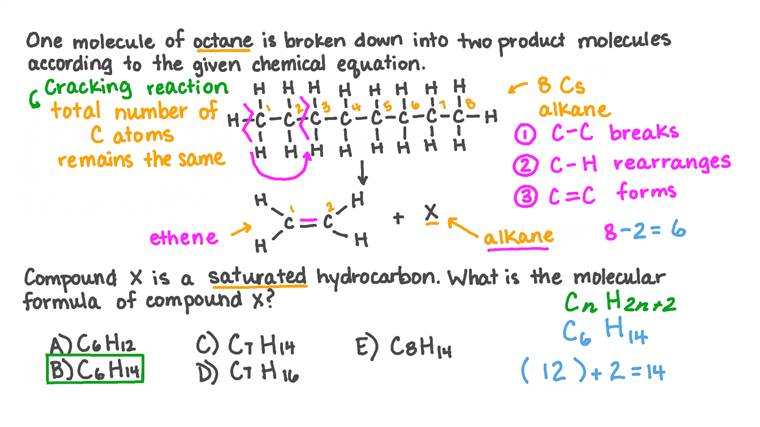 One molecule of octane is broken down into two product molecules
according to the given chemical equation.
Cracking reaction
total number of
C atoms
remains the same
H H H H H H H H
1 2 3 4 5 6 7 8
H-C-C-C-C-C-C-C-C-H
H H H H H H H H
8 Cs
alkane
① C-C breaks
② C-H rearranges
③ C=C forms
8-2=6
H H
1 2
C=C
H H
+ X
ethene
alkane
Compound X is a saturated hydrocarbon. What is the molecular
formula of compound X?
CnH2n+2
C6 H14
(12)+2=14
A) C6H12
B) C6H14
C) C7H14
D) C7H16
E) C8H14